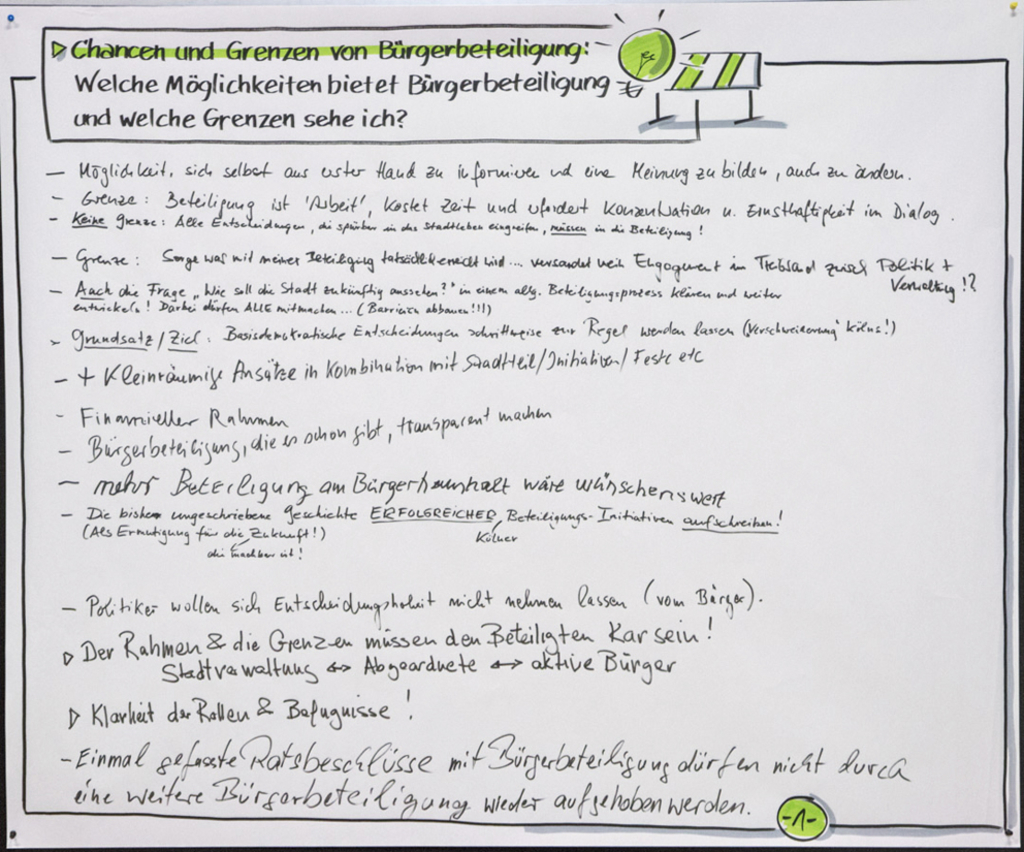 Chancen und Grenzen von Bürgerbeteiligung:
Welche Möglichkeiten bietet Bürgerbeteiligung
und welche Grenzen sehe ich?
- Möglichkeit, sich selbst aus erster Hand zu informieren und eine Meinung zu bilden, auch zu ändern.
- Grenze: Beteiligung ist 'Arbeit', kostet Zeit und erfordert Konzentration u. Ernsthaftigkeit im Dialog.
- Keine Grenze: Alle Entscheidungen, die spürbar in das Stadtleben eingreifen, müssen in die Beteiligung!
- Grenze: Sorge was mit meiner Beteiligung tatsächl. erreicht wird... versandet mein Engagement im Treibsand zwisch Politik +
Verwaltung!?
- Auch die Frage „Wie soll die Stadt zukünftig aussehen?" in einem allg. Beteiligungsprozess klären und weiter
entwickeln! Dabei dürfen ALLE mitmachen... (Barrieren abbauen!!!)
- Grundsatz/Ziel: Basisdemokratische Entscheidungen schrittweise zur Regel werden lassen („Verschweizerung" Kölns!)
- + Kleinräumige Ansätze in Kombination mit Stadtteil/Initiativen/Feste etc
- Finanzieller Rahmen
- Bürgerbeteiligung, die es schon gibt, transparent machen
- mehr Beteiligung am Bürgerhaushalt wäre wünschenswert
- Die bisher ungeschriebene Geschichte ERFOLGREICHER Beteiligungs-Initiativen aufschreiben!
(Als Ermutigung für die Zukunft!) Kölner
die machbar ist!
- Politiker wollen sich Entscheidungshoheit nicht nehmen lassen (vom Bürger).
Der Rahmen & die Grenzen müssen den Beteiligten Kar sein!
Stadtverwaltung ↔ Abgeordnete ↔ aktive Bürger
Klarheit der Rollen & Befugnisse!
- Einmal gefasste Ratsbeschlüsse mit Bürgerbeteiligung dürfen nicht durch
eine weitere Bürgerbeteiligung wieder aufgehoben werden.
-1-